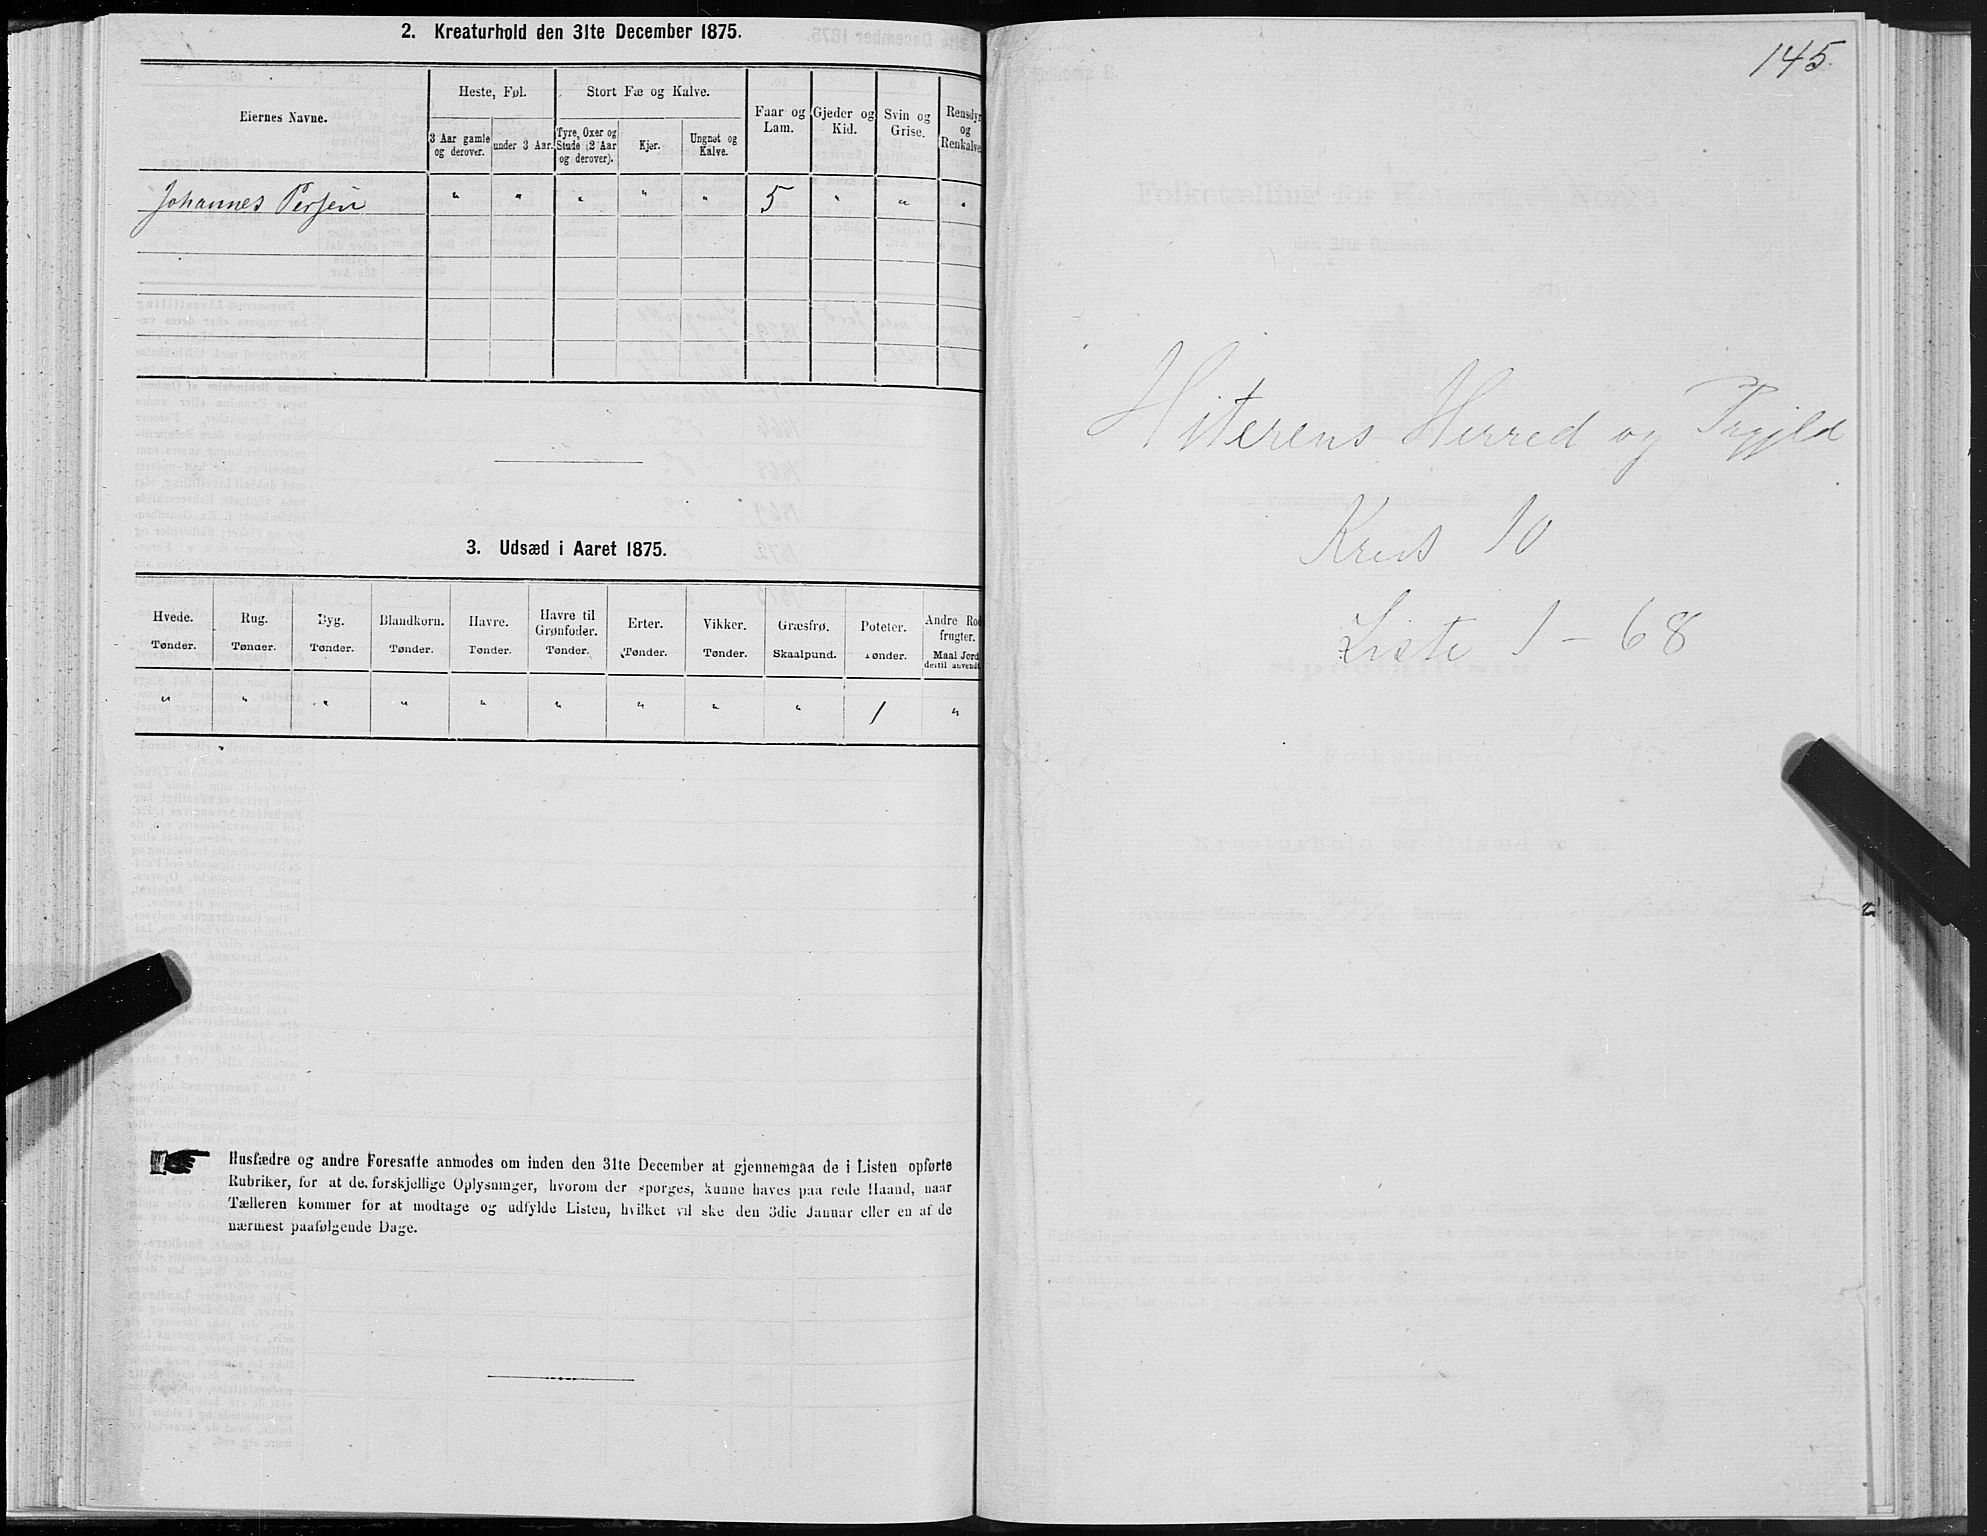 2. Kreaturhold den 31te December 1875.
Eiernes Navne.
Heste, Føl.
Stort Fæ og Kalve.
Faar og Lam.
Gjeder og Kid.
Svin og Grise.
Rensdyr og Renkalve
3 Aar gamle og derover.
under 3 Aar.
Tyre, Oxer og Stude (2 Aar og derover).
Kjør.
Ungnøt og Kalve.
Johannes Persen " " " " " 5 " " "
3. Udsæd i Aaret 1875.
Hvede. Rug. Byg. Blandkorn. Havre. Havre til Grønfoder. Erter. Vikker. Græsfrø. Poteter. Andre Rodfrugter.
Tønder. Tønder. Tønder. Tønder. Tønder. Tønder. Tønder. Tønder. Skaalpund. Tønder. Maal Jord dertil anvendt
" " " " " " " " " 1 "
Husfædre og andre Foresatte anmodes om inden den 31te December at gjennemgaa de i Listen opførte
Rubriker, for at de forskjellige Oplysninger, hvorom der spørges, kunne haves paa rede Haand, naar
Tælleren kommer for at modtage og udfylde Listen, hvilket vil ske den 3die Januar eller en af de
nærmest paafølgende Dage.
145.
Hiterens Herred og Prgjld
Kreds 10
Liste 1 - 68